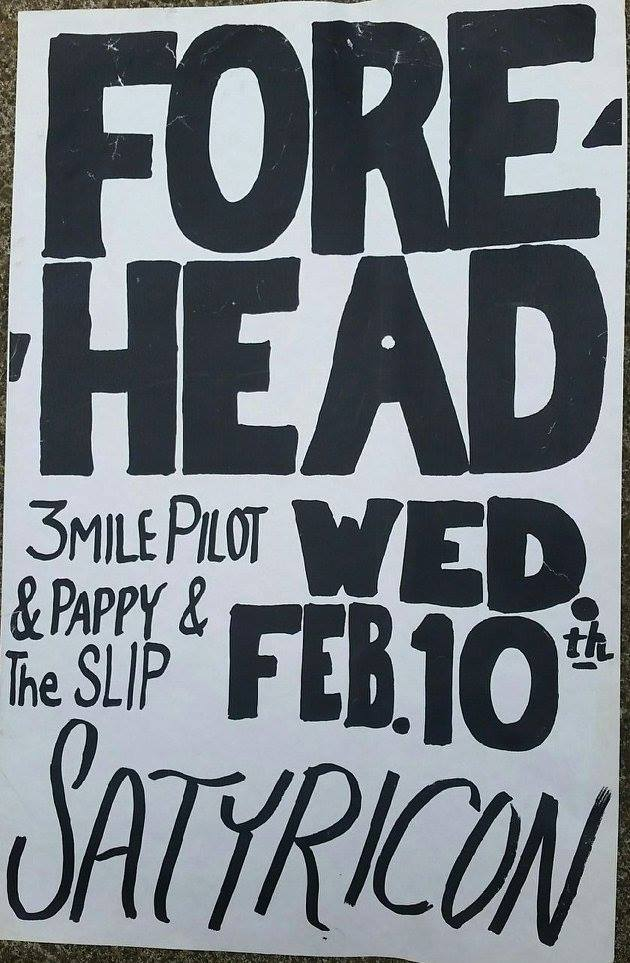 FORE-
-HEAD
3MILE PILOT
& PAPPY &
The SLIP
WED.
FEB.10th
SATYRICON